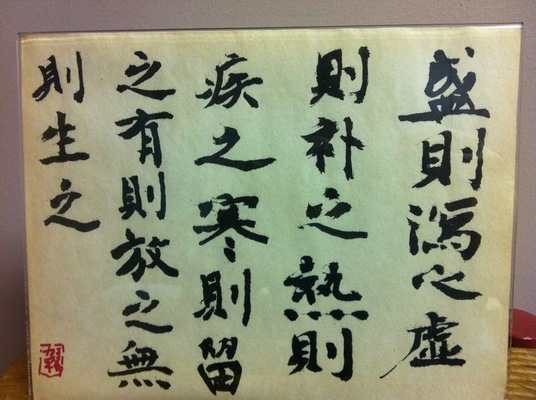 盛則瀉之虛
則补之熱則
疾之寒則留
之有則放之無
則生之